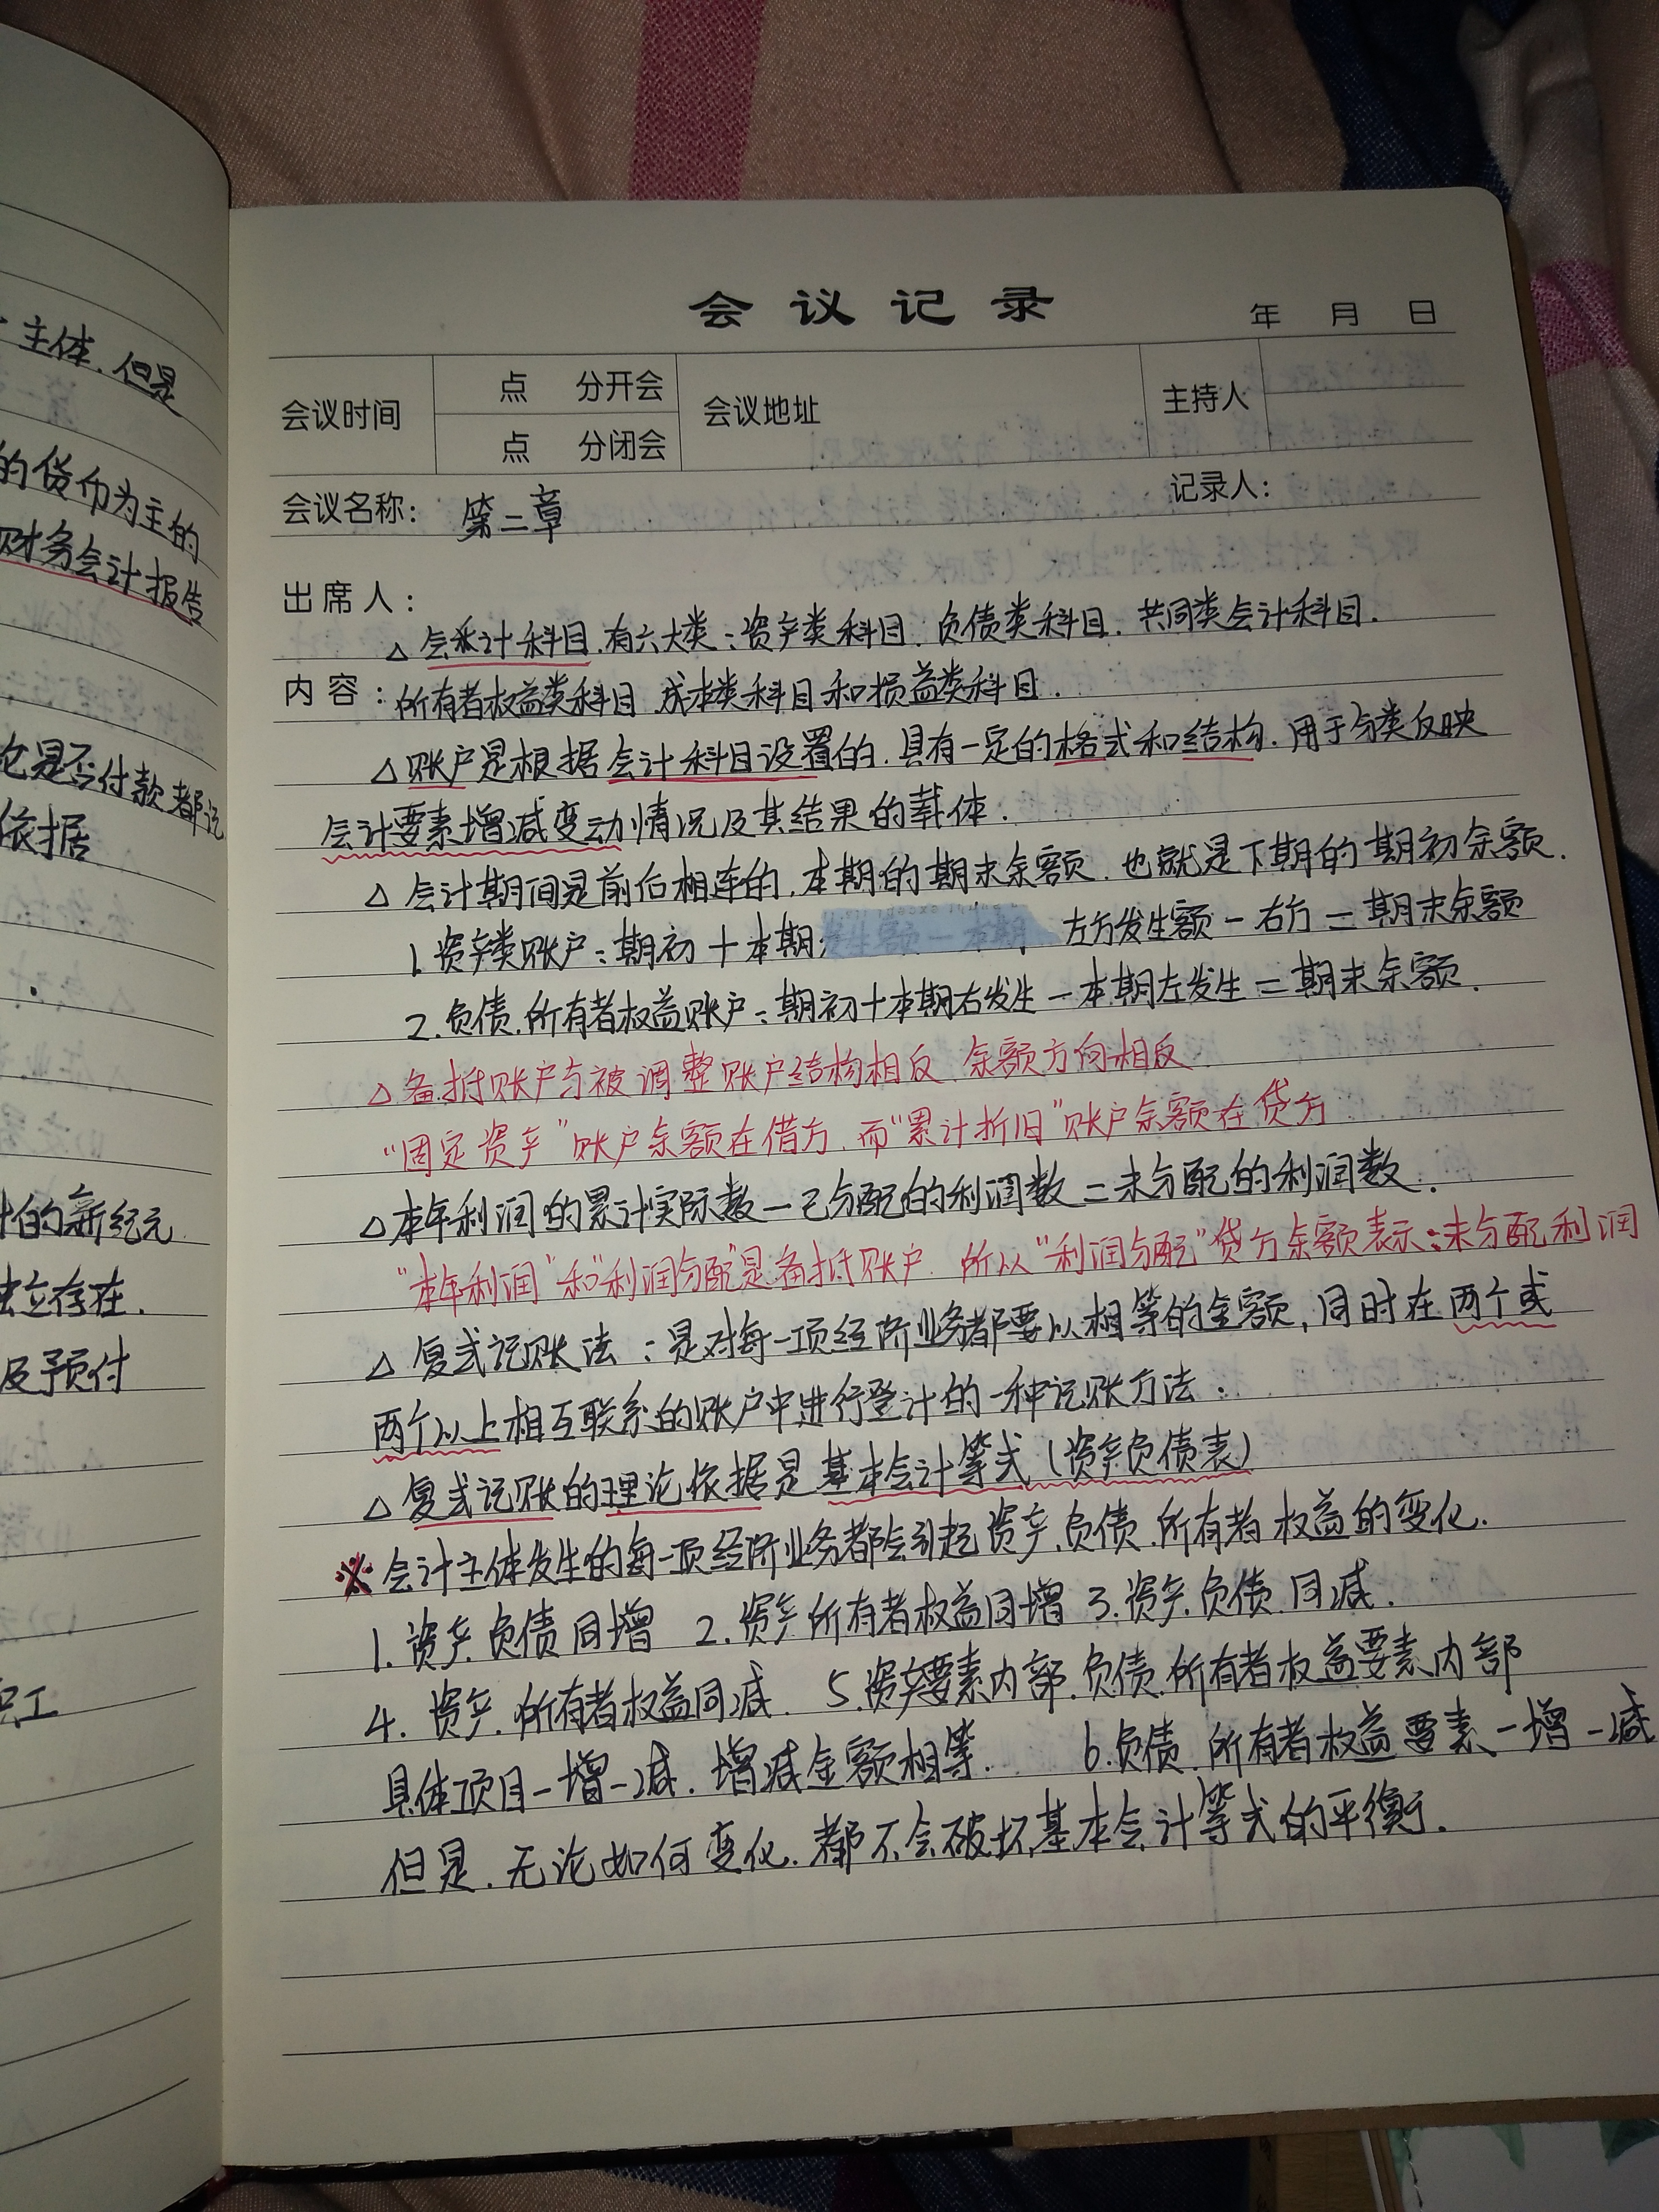 主体.但是
的货币为主的
财务会计报告
是否付款都记
依据
的新纪元
独立存在.
及预付
职工
会议记录
年 月 日
会议时间 点 分开会 会议地址 主持人
点 分闭会
会议名称: 第二章 记录人:
出席人:
△会计科目.有六大类:资产类科目.负债类科目.共同类会计科目.
内容:所有者权益类科目.成本类科目和损益类科目.
△账户是根据会计科目设置的.具有一定的格式和结构.用于分类反映
会计要素增减变动情况及其结果的载体.
△会计期间是前后相连的.本期的期末余额.也就是下期的期初余额.
1.资产类账户:期初+本期左方发生额-右方=期末余额
2.负债.所有者权益账户:期初+本期右发生-本期左发生=期末余额.
△备抵账户与被调整账户结构相反.余额方向相反.
“固定资产”账户余额在借方.而“累计折旧”账户余额在贷方
△本年利润的累计实际数-已分配的利润数=未分配的利润数.
“本年利润”和“利润分配”是备抵账户.所以“利润分配”贷方余额表示:未分配利润
△复式记账法:是对每一项经济业务都要以相等的金额,同时在两个或
两个以上相互联系的账户中进行登计的一种记账方法.
△复式记账的理论依据是基本会计等式(资产负债表)
※会计主体发生的每一项经济业务都会引起资产.负债.所有者权益的变化.
1.资产.负债同增 2.资产.所有者权益同增 3.资产.负债.同减.
4.资产.所有者权益同减. 5.资产要素内部.负债.所有者权益要素内部
具体项目一增一减.增减金额相等. 6.负债.所有者权益要素一增一减
但是.无论如何变化.都不会破坏基本会计等式的平衡.